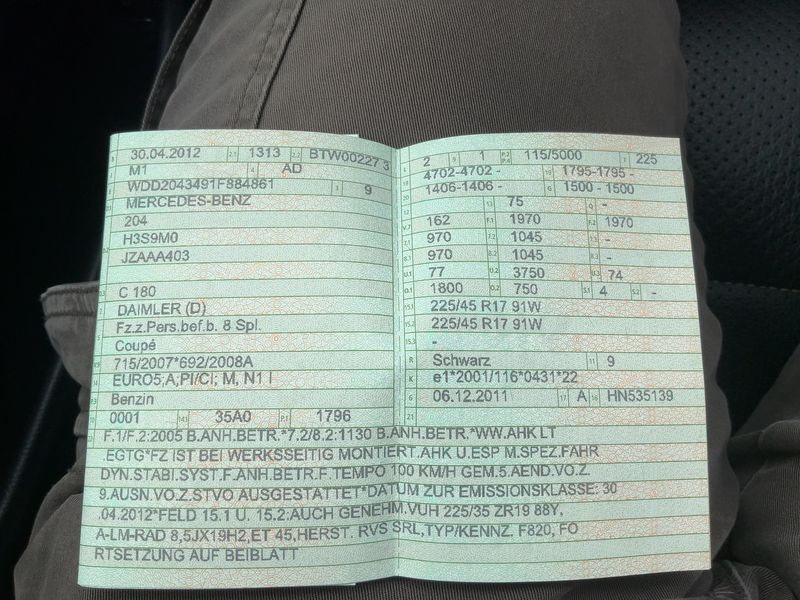 30.04.2012 2.1 1313 2.2 BTW00227 3
M1 AD
WDD2043491F884861 9
MERCEDES-BENZ
204
H3S9M0
JZAAA403
C 180
DAIMLER (D)
Fz.z.Pers.bef.b. 8 Spl.
Coupé
715/2007*692/2008A
EURO5;A;PI/CI; M, N1 I
Benzin
0001 35A0 P.1 1796
2 9 1 115/5000 T 225
4702-4702 - 1795-1795 -
1406-1406 - 1500 - 1500
75 Q -
V.7 162 F.1 1970 F.2 1970
7.1 970 7.2 1045 -
8.1 970 8.2 1045 -
U.1 77 U.2 3750 U.3 74
O.1 1800 O.2 750 S.1 4 S.2 -
15.1 225/45 R17 91W
15.2 225/45 R17 91W
15.3 -
R Schwarz 11 9
K e1*2001/116*0431*22
6 06.12.2011 17 A 16 HN535139
21
22 F.1/F.2:2005 B.ANH.BETR.*7.2/8.2:1130 B.ANH.BETR.*WW.AHK LT
.EGTG*FZ IST BEI WERKSSEITIG MONTIERT.AHK U.ESP M.SPEZ.FAHR
DYN.STABI.SYST.F.ANH.BETR.F.TEMPO 100 KM/H GEM.5.AEND.VO.Z.
9.AUSN.VO.Z.STVO AUSGESTATTET*DATUM ZUR EMISSIONKLASSE: 30
.04.2012*FELD 15.1 U. 15.2:AUCH GENEHM.VUH 225/35 ZR19 88Y,
A-LM-RAD 8,5JX19H2,ET 45,HERST. RVS SRL,TYP/KENNZ. F820, FO
RTSETZUNG AUF BEIBLATT